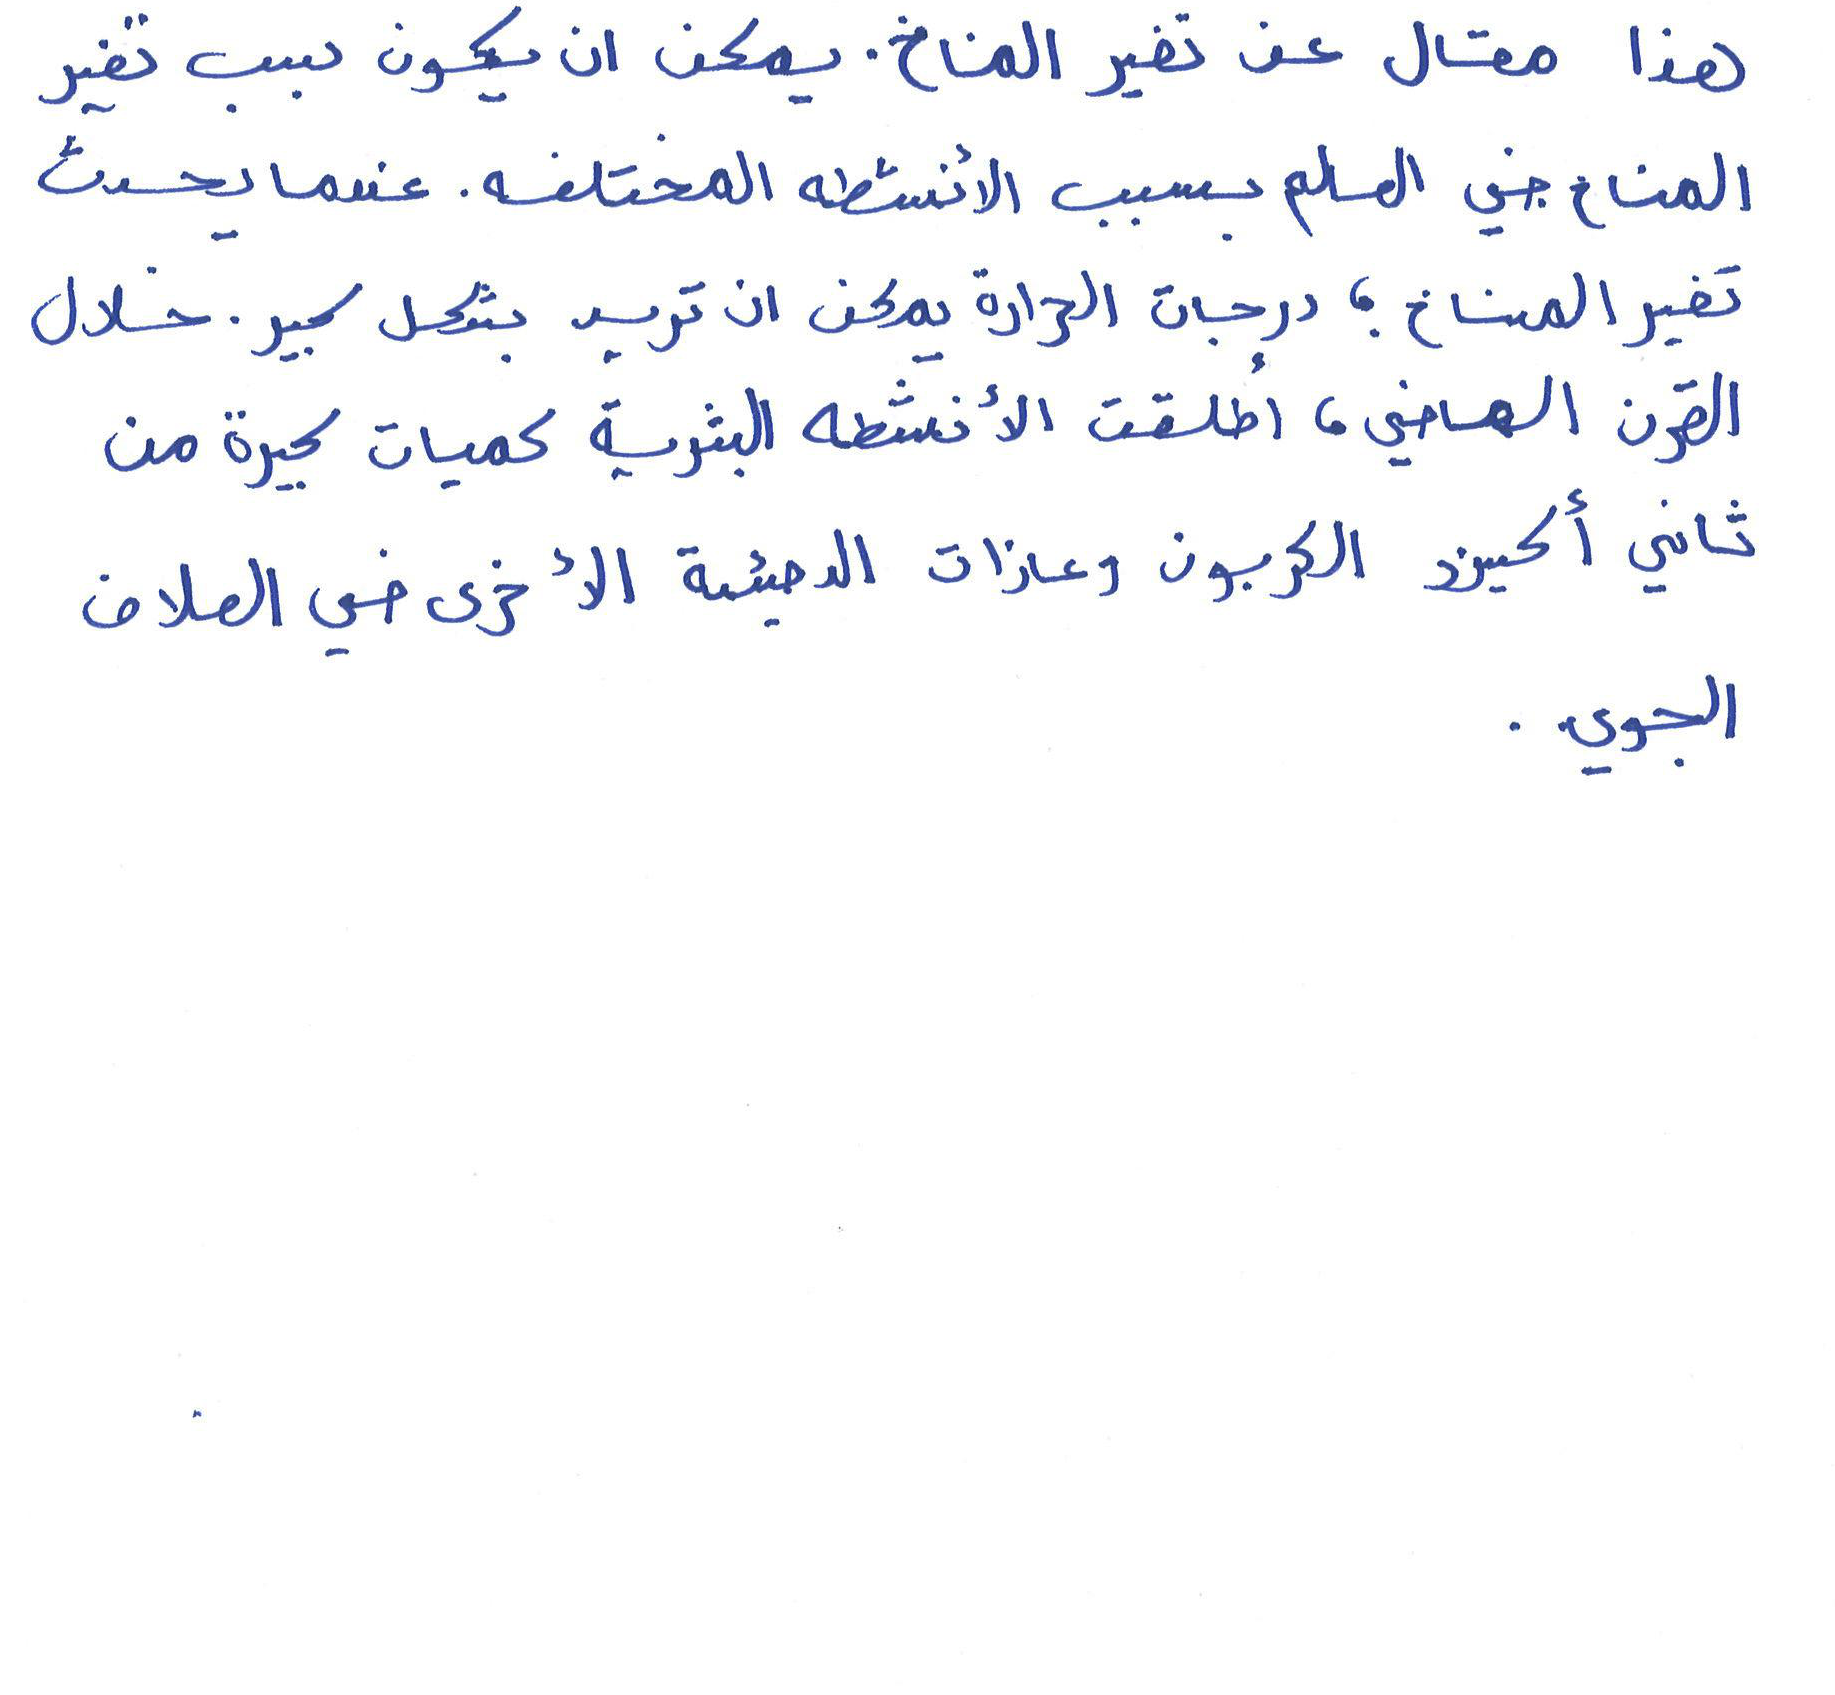 هذا مقال عن تغير المناخ. يمكن ان يكون سبب تغير
المناخ في العلم بسبب الأنشطه المختلفه. عندما يحدث
تغير المناخ، درجات الحرارة يمكن ان تزيد بشكل كبير. خلال
القرن الماضي، أطلقت الأنشطه البشرية كميات كبيرة من
ثاني أكسيد الكربون وغازات الدفيئة الأخرى في الغلاف
الجوي.